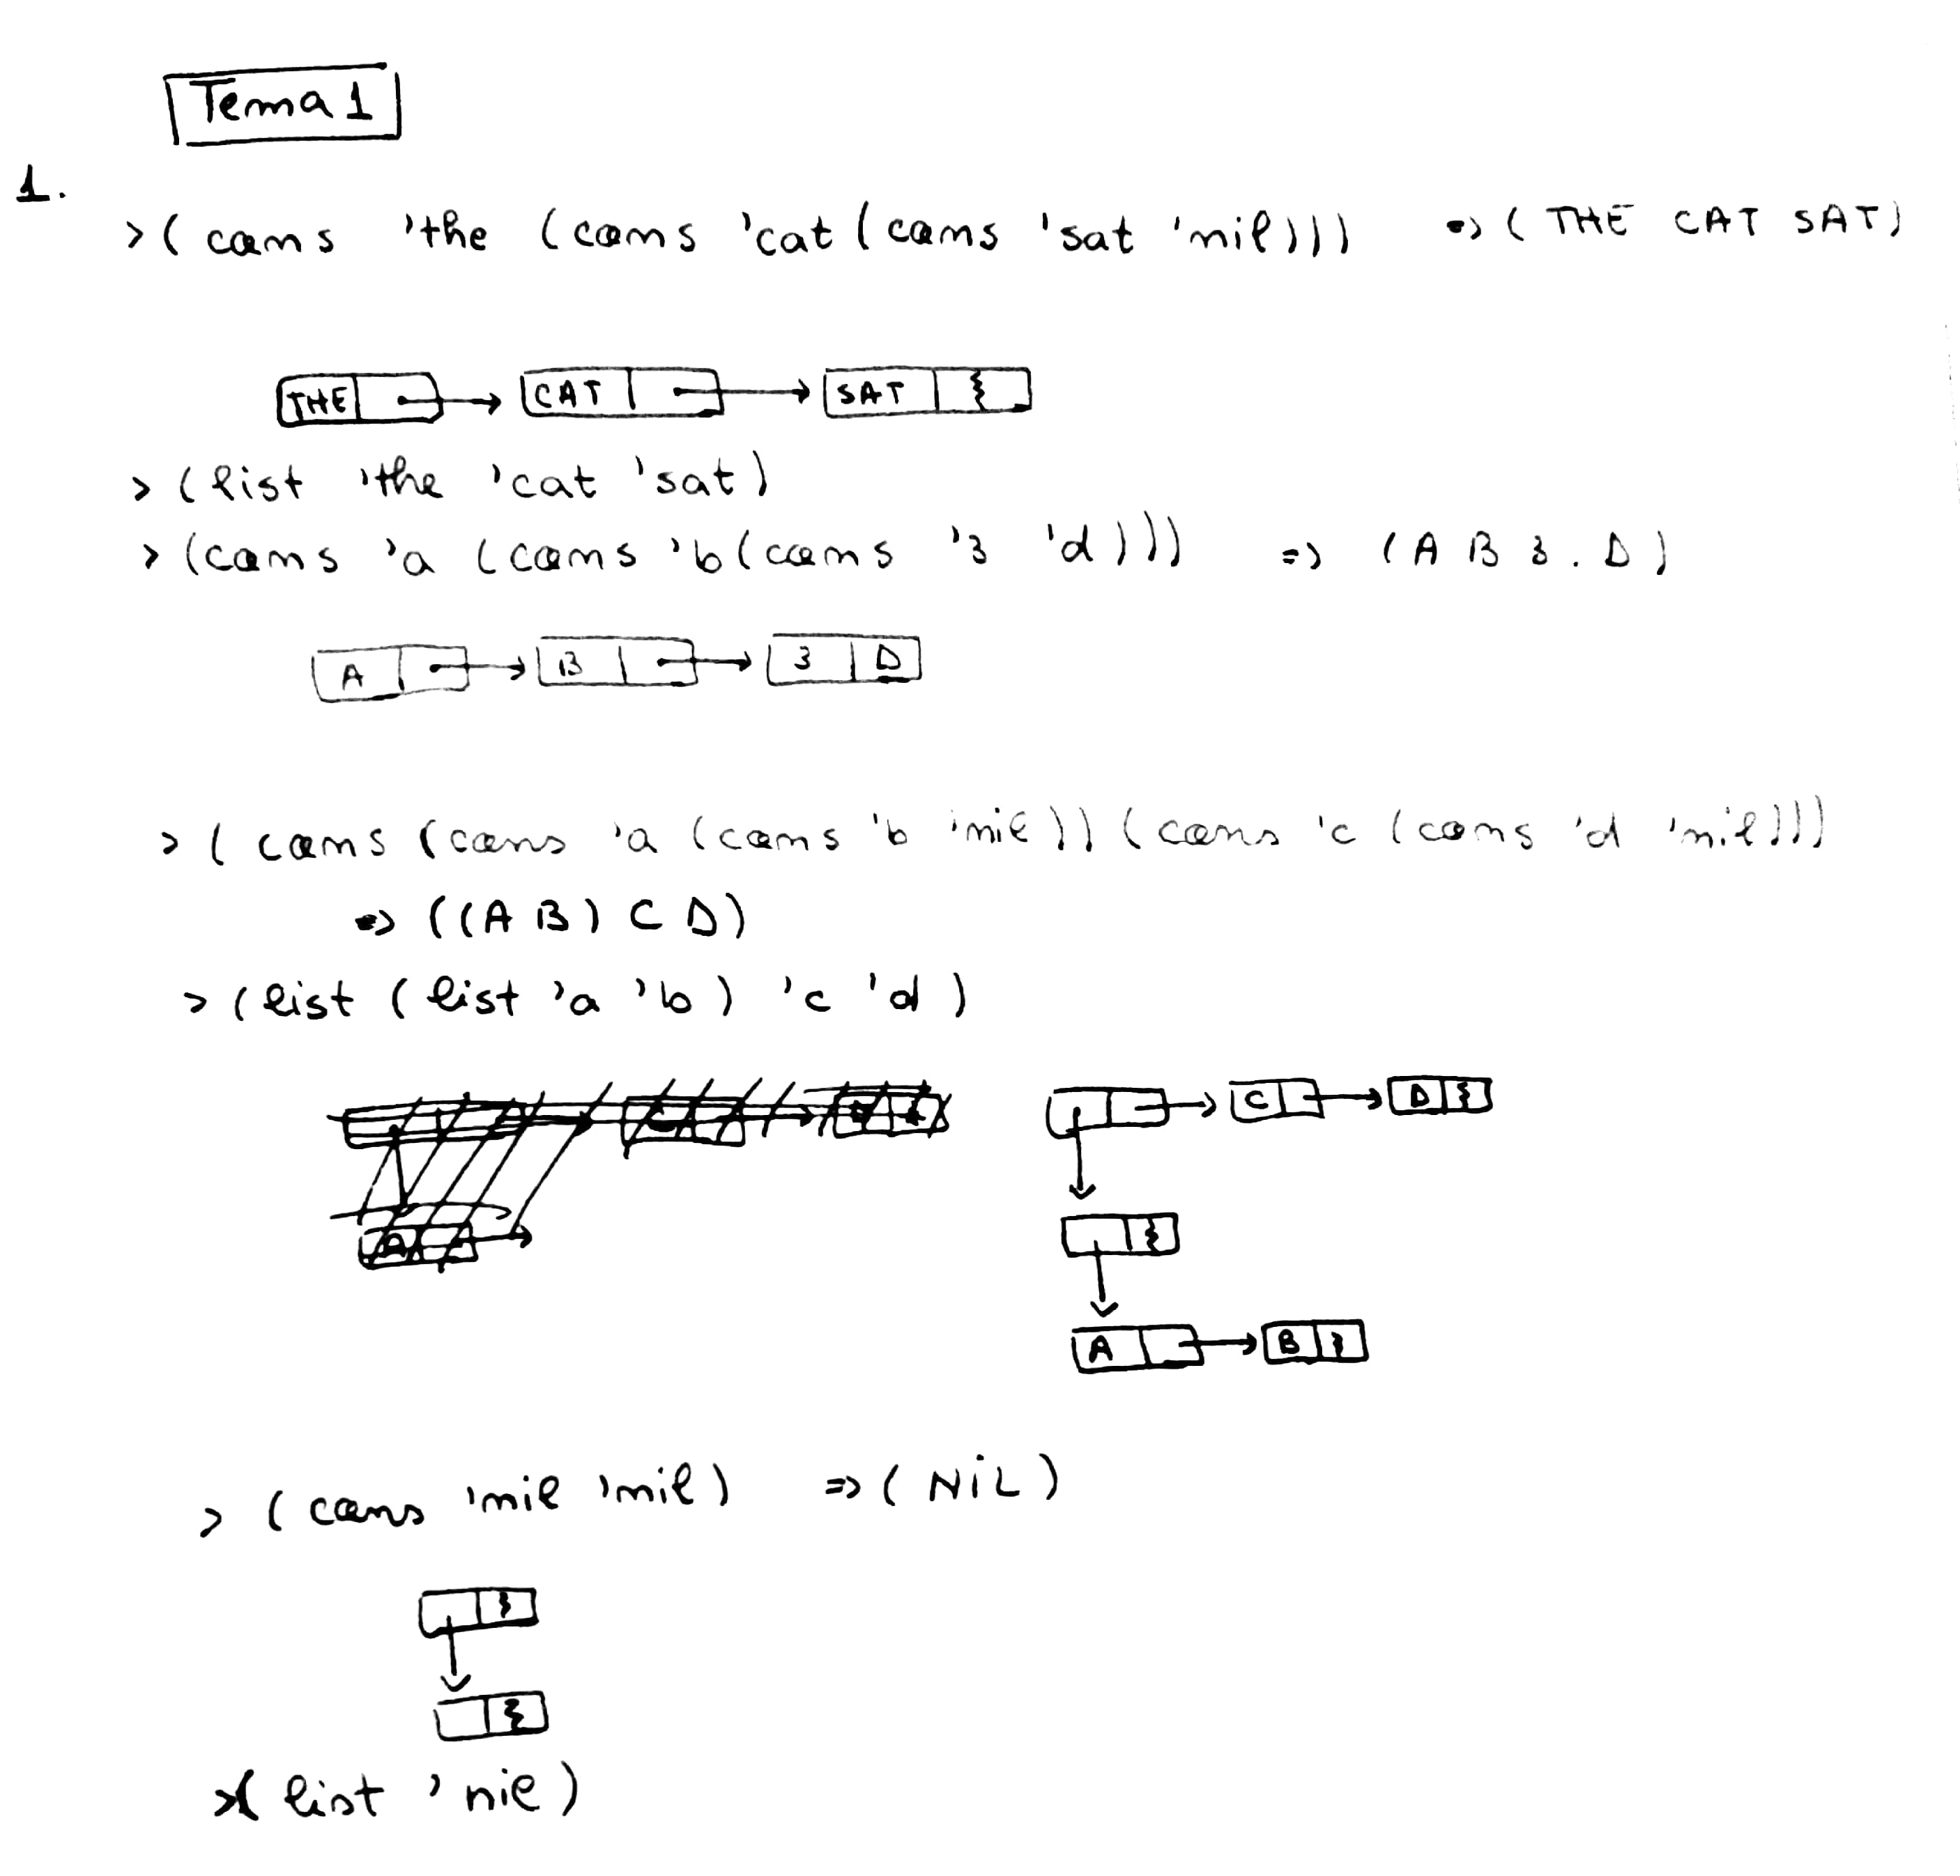 Tema 1
1.
>(cons 'the (cons 'cat (cons 'sat 'nil))) => (THE CAT SAT)
THE CAT SAT
>(list 'the 'cat 'sat)
>(cons 'a (cons 'b (cons '3 'd))) => (A B 3 . D)
A B 3 D
>(cons (cons 'a (cons 'b 'nil)) (cons 'c (cons 'd 'nil)))
=> ((A B) C D)
>(list (list 'a 'b) 'c 'd)
C D
A B
>(cons 'nil 'nil) => (NIL)
>(list 'nil)